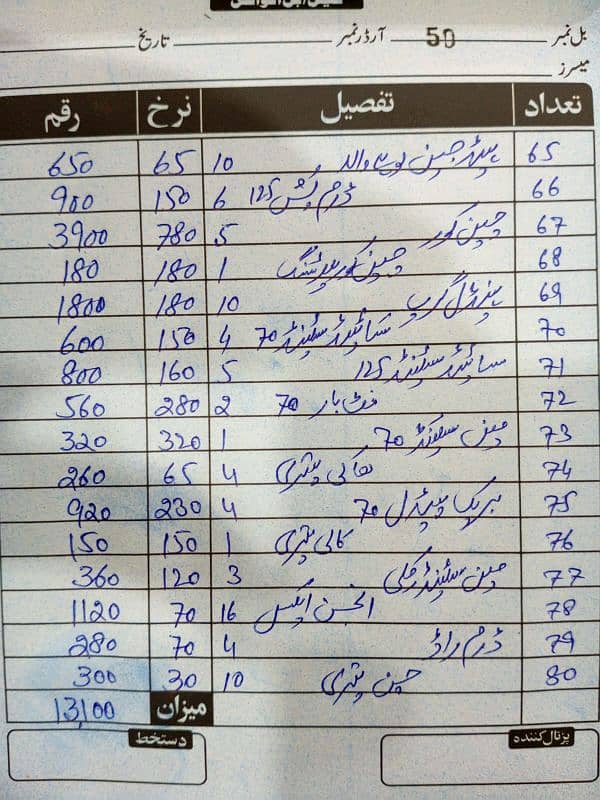 بل نمبر 50 آرڈر نمبر تاریخ
میسرز
تعداد تفصیل نرخ رقم
65 ہیڈ چین 10 65 650
66 ڈرم بُش 125 6 150 900
67 چین کور 5 780 3900
68 چین کور 1 180 180
69 ہینڈل گرپ 10 180 1800
70 سائیڈ سٹینڈ 70 4 150 600
71 سائیڈ سٹینڈ 125 5 160 800
72 فٹ بار 70 2 280 560
73 مین سٹینڈ 70 1 320 320
74 پتری 4 65 260
75 بریک پیڈل 70 4 230 920
76 کالی پتری 1 150 150
77 مین سٹینڈ 3 120 360
78 انجن 16 70 1120
79 ڈرم راڈ 4 70 280
80 چین پتری 10 30 300
میزان 13,100
پڑتال کنندہ دستخط